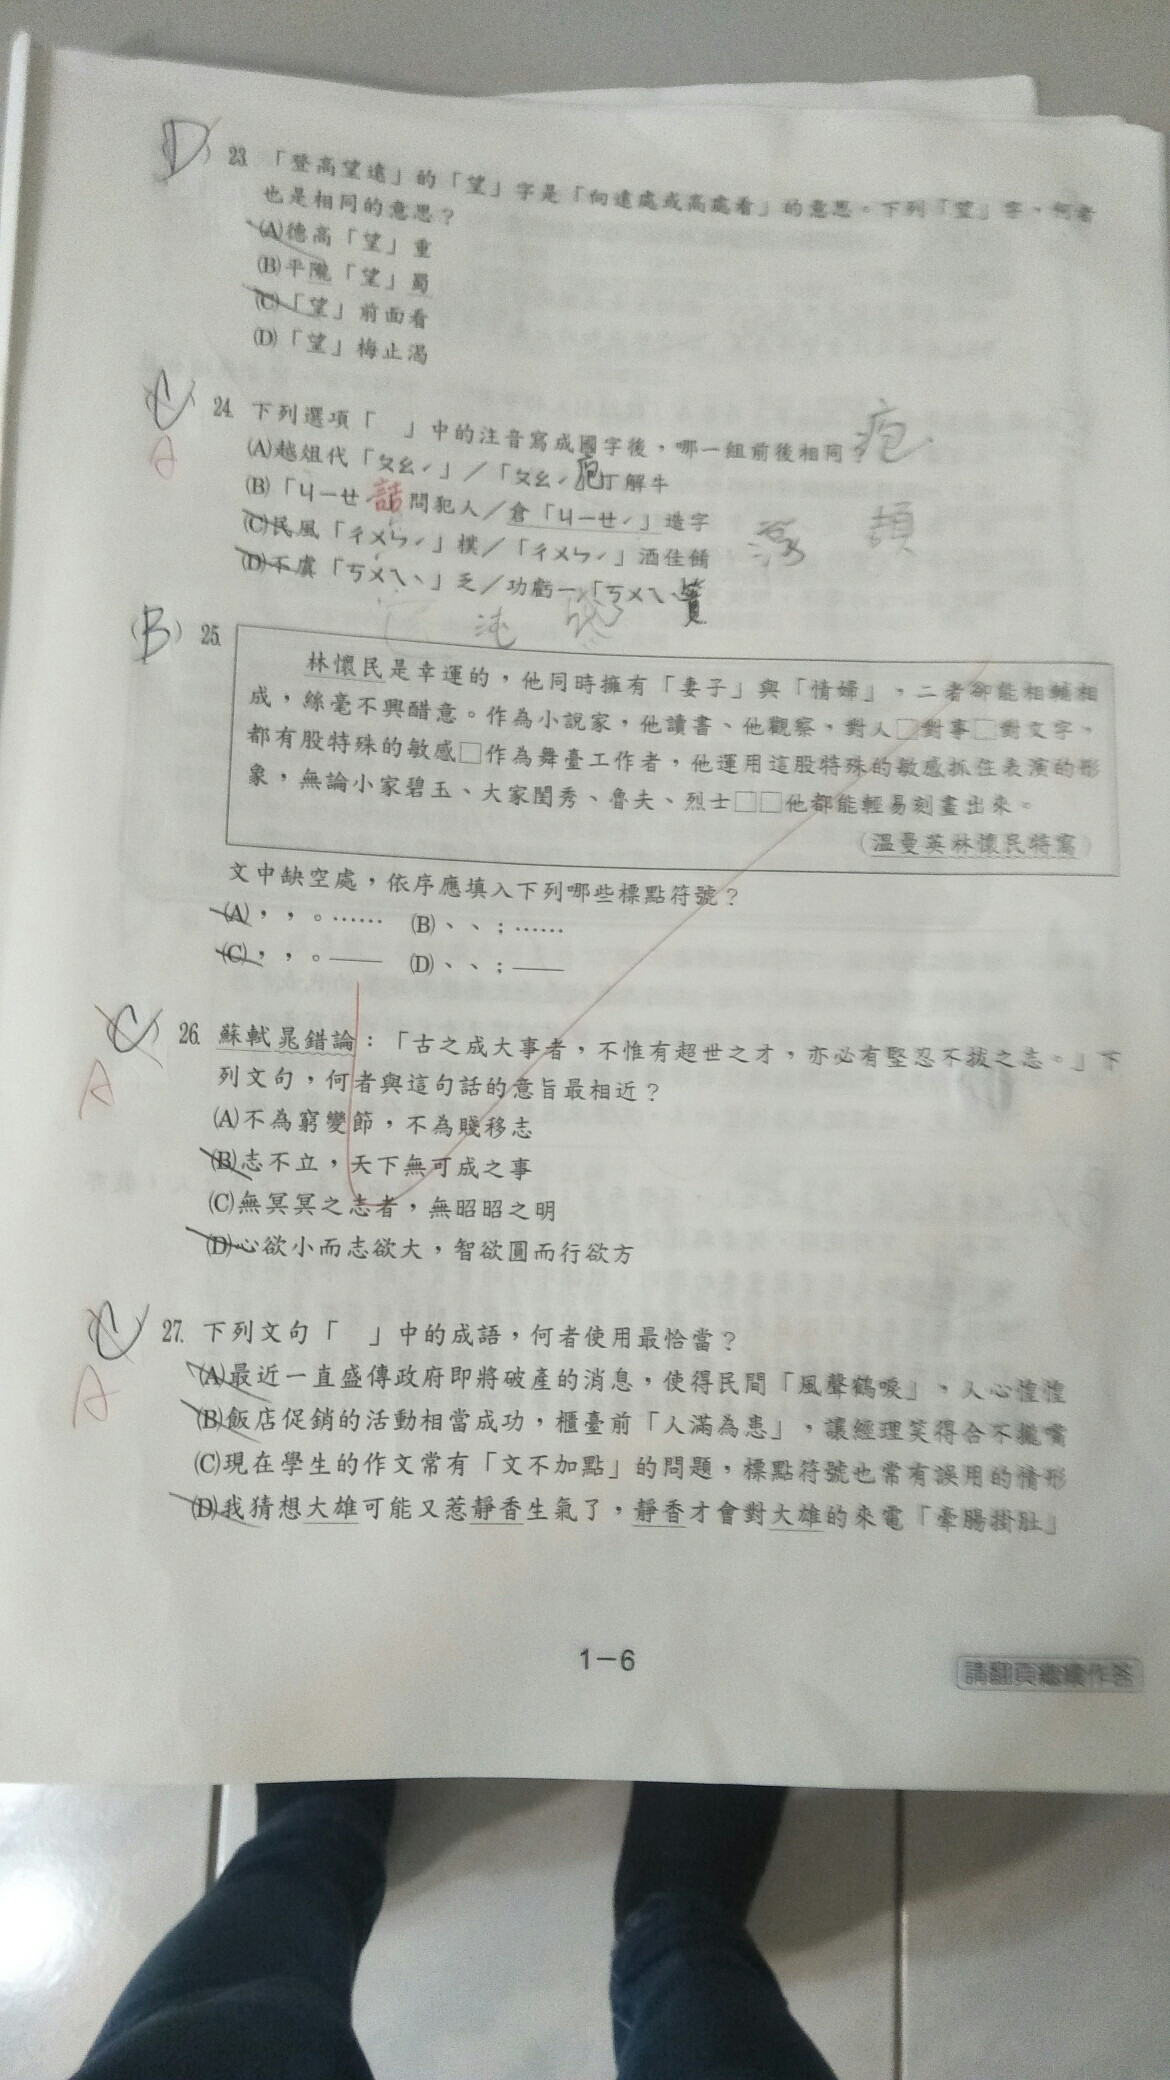 (D) 23. 「登高望遠」的「望」字是「向遠處或高處看」的意思。下列「望」字，何者
也是相同的意思？
(A)德高「望」重
(B)平隴「望」蜀
(C)「望」前面看
(D)「望」梅止渴
(C) 24. 下列選項「　」中的注音寫成國字後，哪一組前後相同
A
(A)越俎代「ㄆㄠˊ」／「ㄆㄠˊ」丁解牛
(B)「ㄐㄧㄝˊ」問犯人／倉「ㄐㄧㄝˊ」造字
詰
(C)民風「ㄔㄨㄣˊ」樸／「ㄔㄨㄣˊ」酒佳餚
(D)不虞「ㄎㄨㄟˋ」乏／功虧一「ㄎㄨㄟˋ」
簣
(B) 25.
林懷民是幸運的，他同時擁有「妻子」與「情婦」，二者卻能相輔相
成，絲毫不興醋意。作為小說家，他讀書、他觀察，對人□對事□對文字，
都有股特殊的敏感□作為舞臺工作者，他運用這股特殊的敏感抓住表演的形
象，無論小家碧玉、大家閨秀、魯夫、烈士□□他都能輕易刻畫出來。
（溫曼英林懷民特寫）
文中缺空處，依序應填入下列哪些標點符號？
(A)，，。…… (B)、、；……
(C)，，。—— (D)、、；——
(C) 26. 蘇軾晁錯論：「古之成大事者，不惟有超世之才，亦必有堅忍不拔之志。」下
A
列文句，何者與這句話的意旨最相近？
(A)不為窮變節，不為賤移志
(B)志不立，天下無可成之事
(C)無冥冥之志者，無昭昭之明
(D)心欲小而志欲大，智欲圓而行欲方
(C) 27. 下列文句「　」中的成語，何者使用最恰當？
A
(A)最近一直盛傳政府即將破產的消息，使得民間「風聲鶴唳」，人心惶惶
(B)飯店促銷的活動相當成功，櫃臺前「人滿為患」，讓經理笑得合不攏嘴
(C)現在學生的作文常有「文不加點」的問題，標點符號也常有誤用的情形
(D)我猜想大雄可能又惹靜香生氣了，靜香才會對大雄的來電「牽腸掛肚」
1－6
請翻頁繼續作答